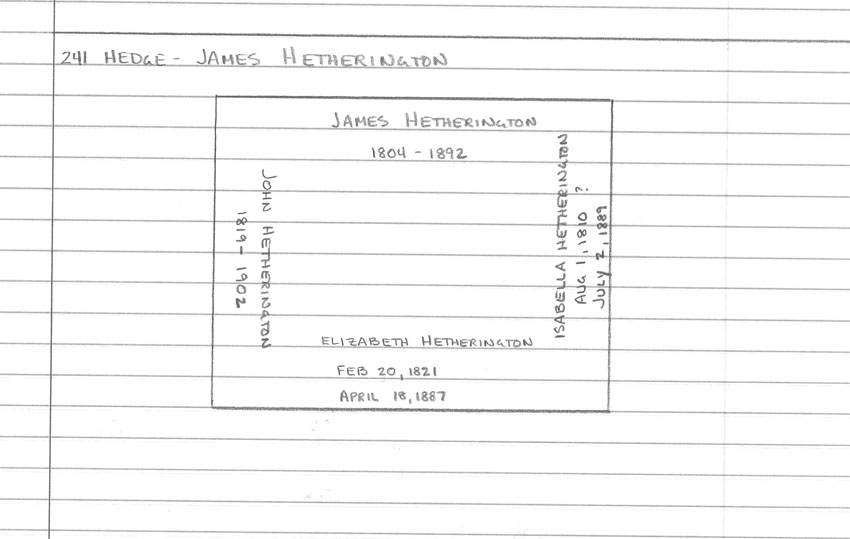 241 HEDGE - JAMES HETHERINGTON
JAMES HETHERINGTON
1804 - 1892
JOHN HETHERINGTON
1819 - 1902
ISABELLA HETHERINGTON
AUG 1, 1810 ?
JULY 2, 1889
ELIZABETH HETHERINGTON
FEB 20, 1821
APRIL 18, 1887